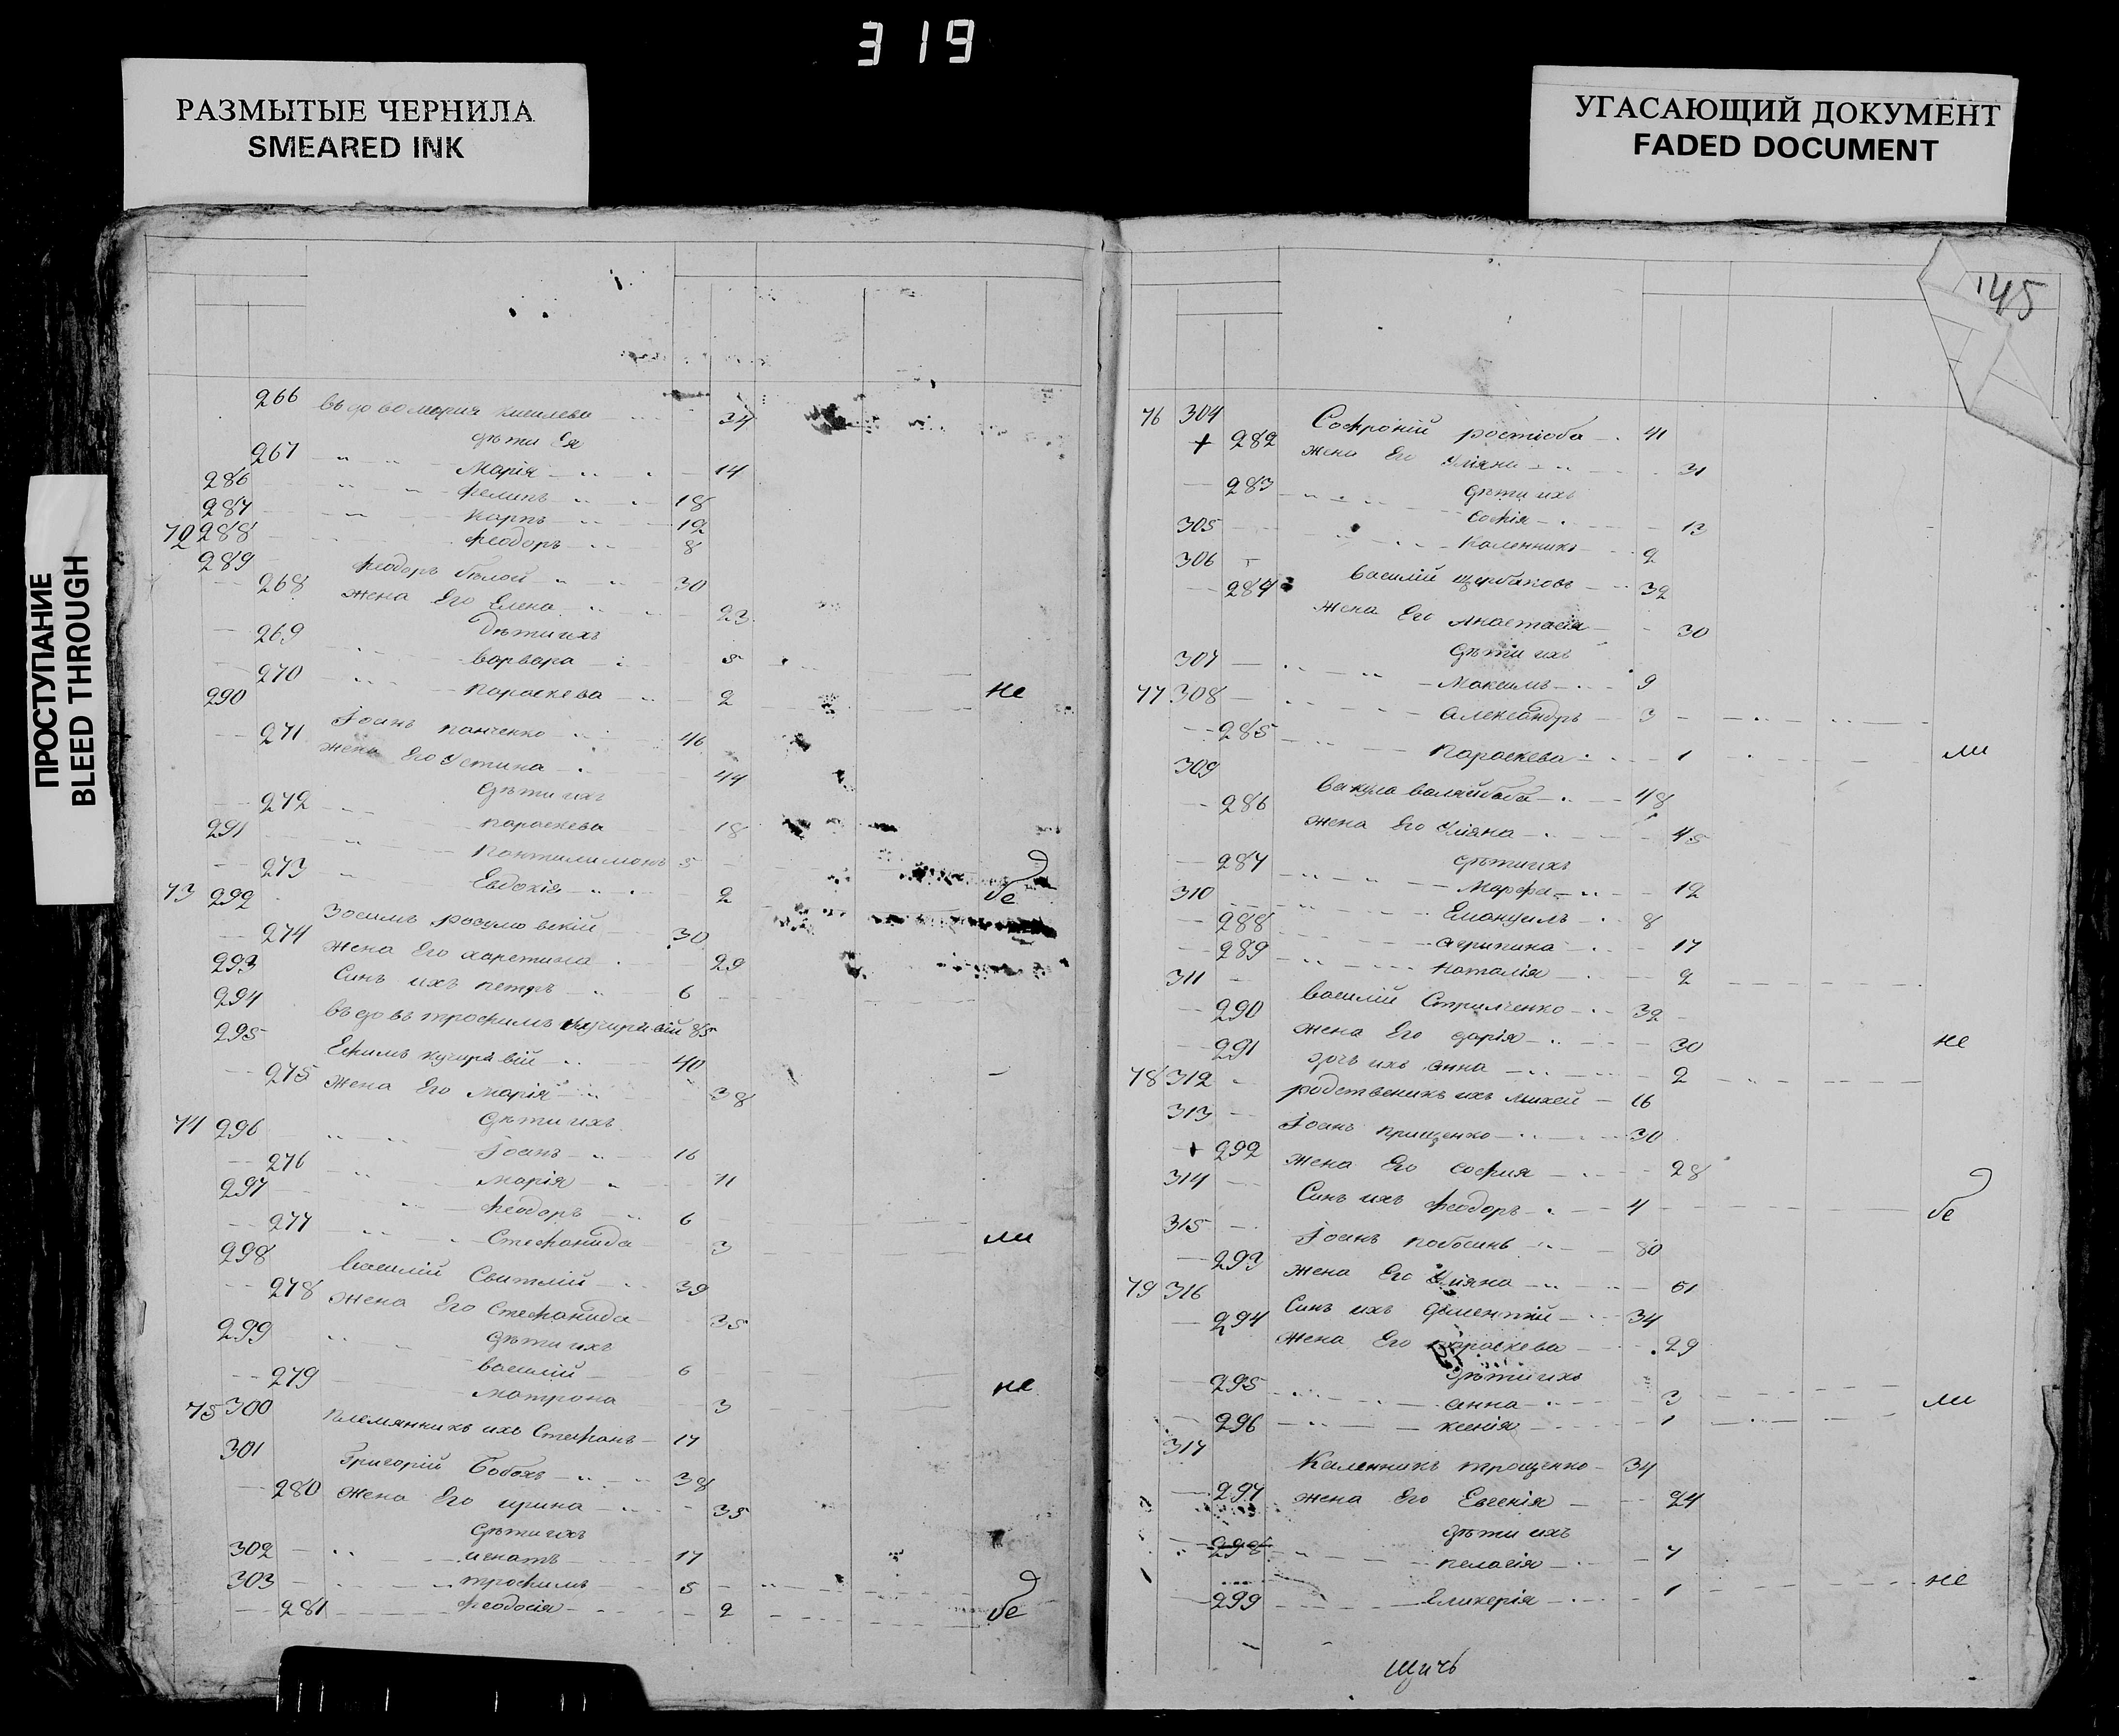 319
РАЗМЫТЫЕ ЧЕРНИЛА
SMEARED INK
УГАСАЮЩИЙ ДОКУМЕНТ
FADED DOCUMENT
ПРОСТУПАНИЕ
BLEED THROUGH
266 34
дѣти Ея
267 Марія 14
286 18
287 Карпъ 12
72 288 Феодоръ 8
289 Феодоръ бѣлой 30
268 жена Его Елена 23
Дѣти ихъ
269 варвара 5
270 параскева 2 не
290 Іоанъ панченко 46
271 жена Его Устина 44
дѣти ихъ
272 параскева 18
291 Пантилимонъ 5
273 Евдокія 2
73 292 Зосимъ 30
274 жена Его харетина 29
293 Синъ ихъ петръ 6
294 85
295 Ефимъ 40
275 жена Его марія 38
дѣти ихъ
74 296 Іоанъ 16
276 марія 11
297 Феодоръ 6
277 Стефанида 3 ли
298 Василій Свитлій 39
278 жена Его Стефанида 35
дѣти ихъ
299 василій 6
279 матрона 3 не
75 300 племянникъ ихъ Стефанъ 17
301 Григорій 38
280 жена Его ирина 35
дѣти ихъ
302 игнатъ 17
303 трофимъ 5
281 феодосія 2
145
76 304 Софроній 41
+ 282 жена Его Уліяна 31
дѣти ихъ
283 софія 13
305 Каленникъ 2
306 василій щербаковъ 32
284 жена Его Анастасія 30
дѣти ихъ
307 Максимъ 9
77 308 александръ 3
285 параскева 1 ли
309 вакула 48
286 жена Его Уліяна 45
дѣти ихъ
287 Марфа 12
310 Емануилъ 8
288 агрипина 17
289 наталія 2
311 василій Стриленко 32
290 жена Его дарія 30 не
291 дочь ихъ анна 2
78 312 родственикъ ихъ михей 16
313 Іоанъ прищенко 30
+ 292 жена Его софия 28
314 Синъ ихъ феодоръ 4
315 Іоанъ 80
293 жена Его Уліяна 61
79 316 Синъ ихъ 34
294 жена Его параскева 29
дѣти ихъ
295 анна 3 ли
296 ксенія 1
317 Каленникъ трощенко 34
297 жена Его Евгенія 24
дѣти ихъ
298 пелагія 7
299 1 не